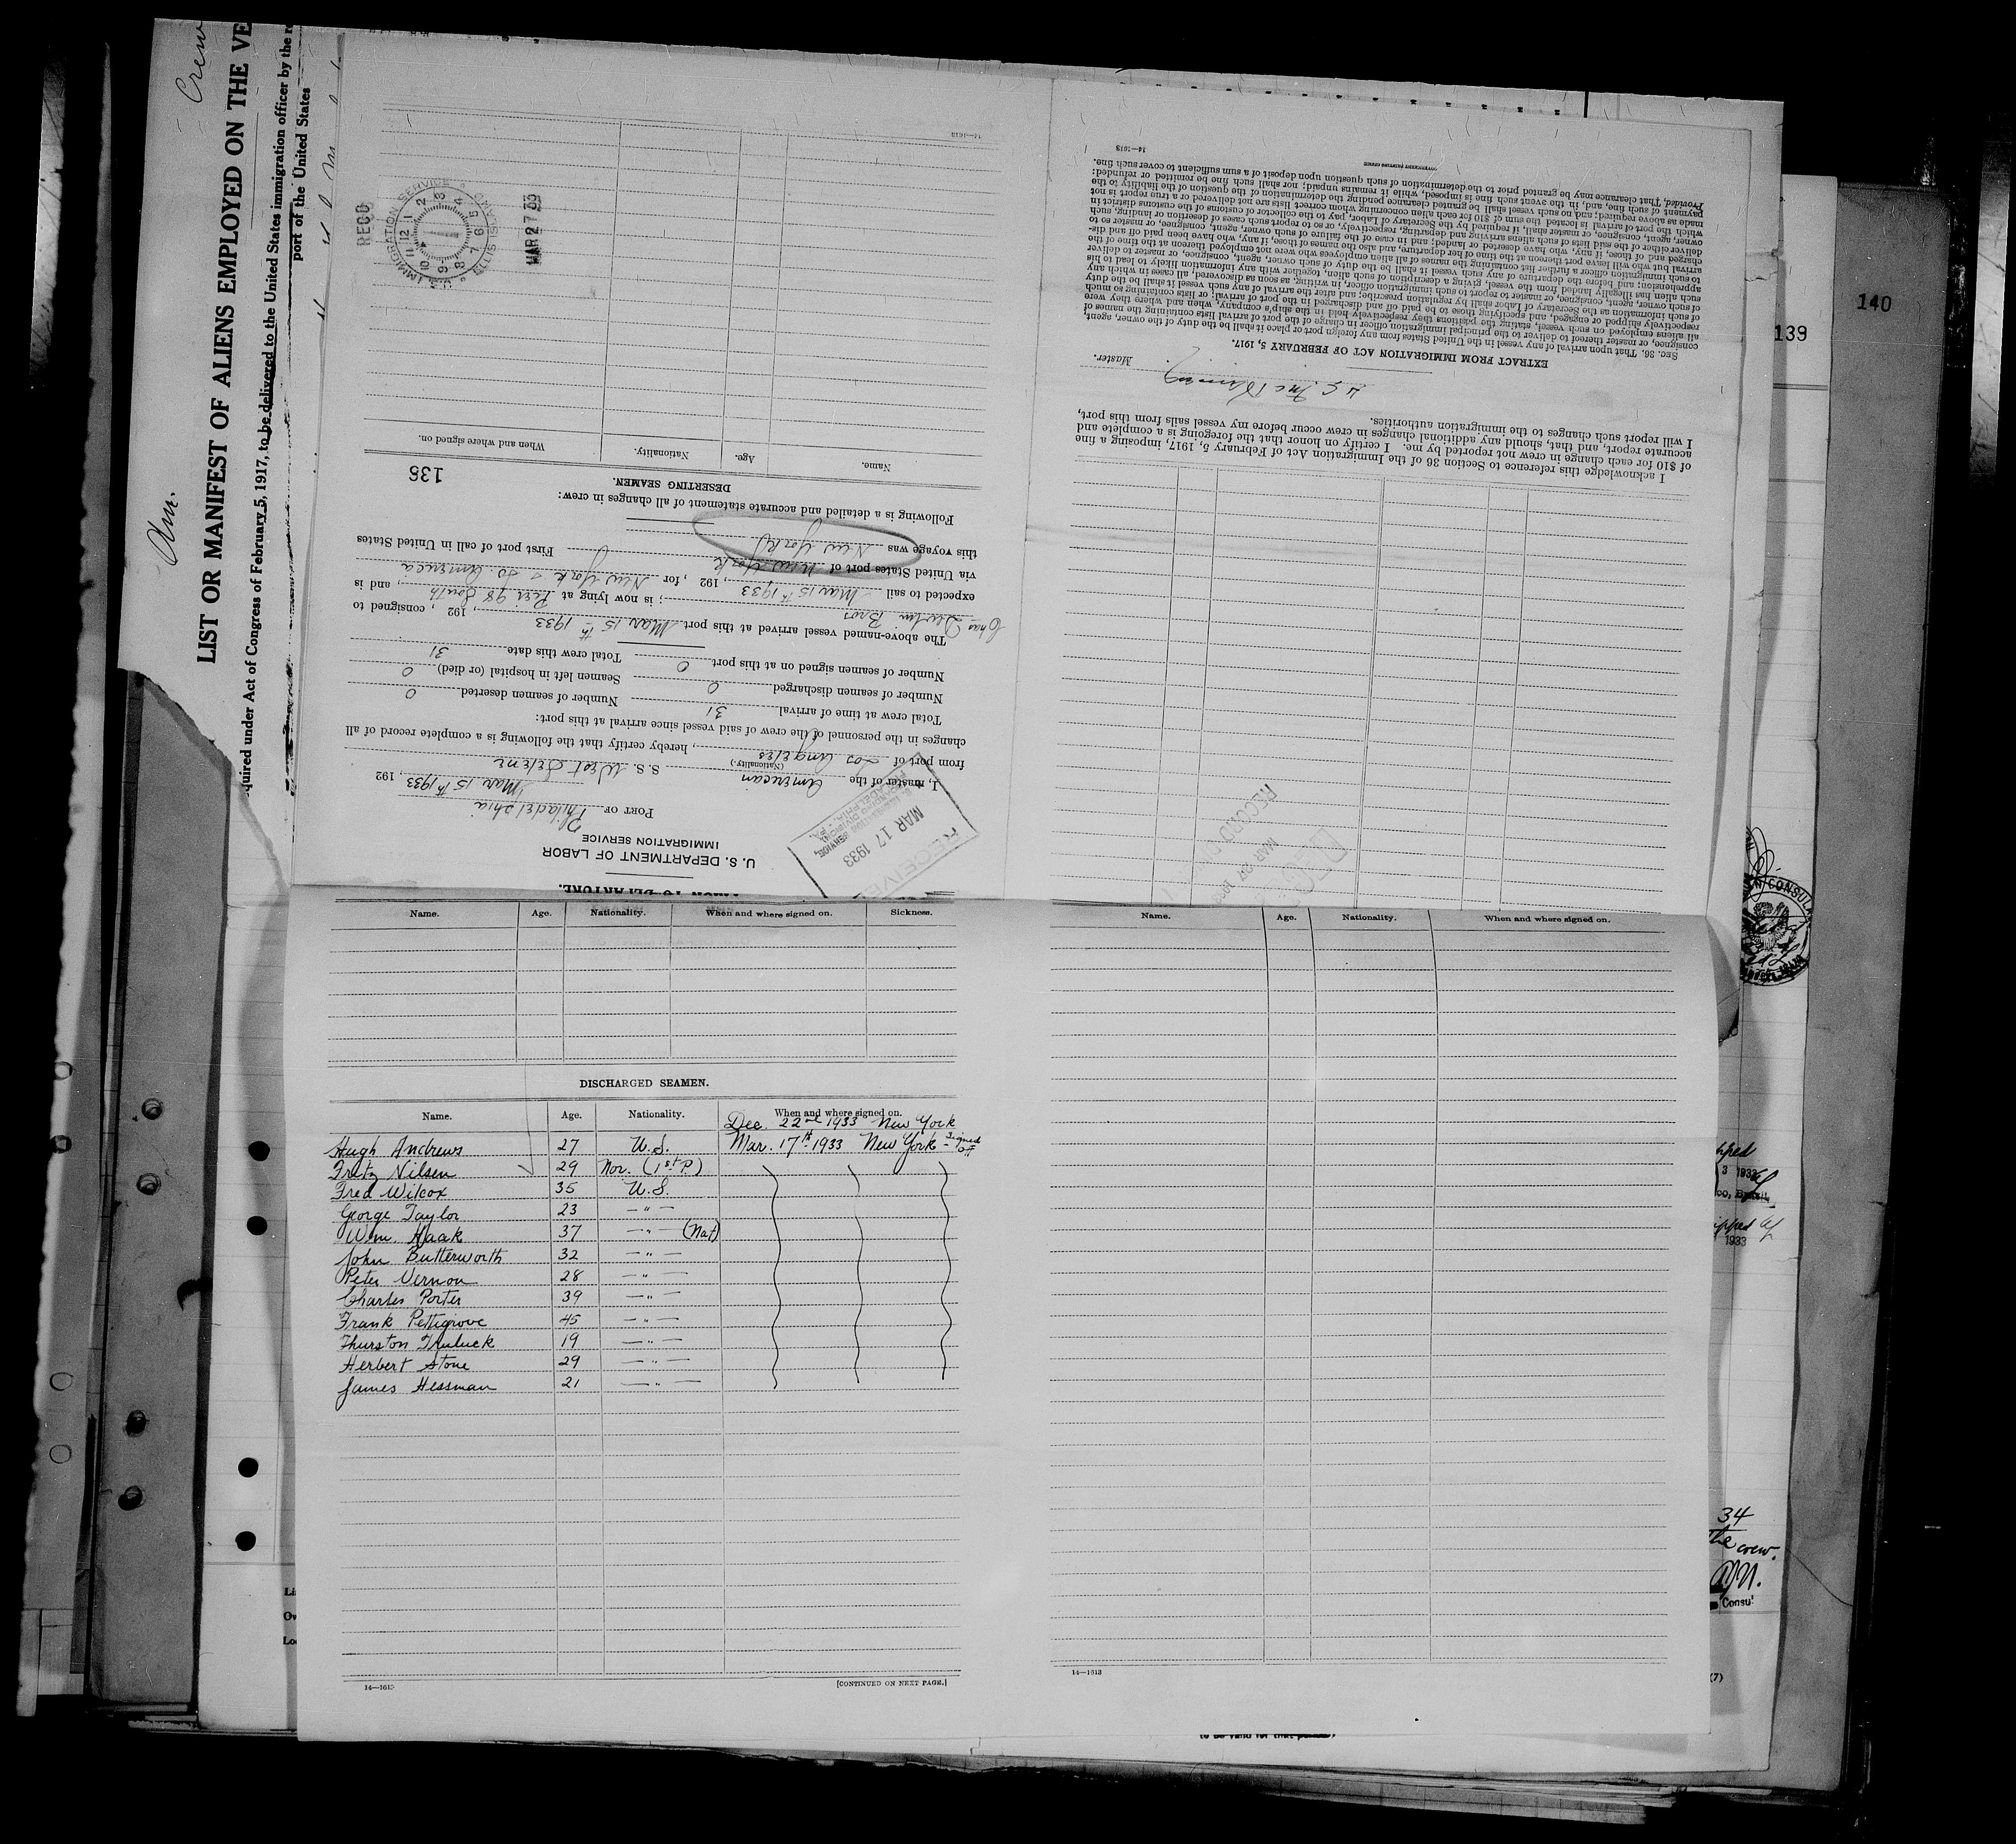 Crew
Am.
LIST OR MANIFEST OF ALIENS EMPLOYED ON THE VE
quired under Act of Congress of February 5, 1917, to be delivered to the United States immigration officer by the r
port of the United States
140
139
U. S. DEPARTMENT OF LABOR
IMMIGRATION SERVICE
PORT OF Philadelphia Mar 15th 1933, 192
I, master of the American S. S. West Selene
(Nationality.)
from port of Los Angeles, hereby certify that the following is a complete record of all
changes in the personnel of the crew of said vessel since arrival at this port:
Total crew at time of arrival 31 Number of seamen deserted 0
Number of seamen discharged 0 Seamen left in hospital (or died) 0
Number of seamen signed on at this port 0 Total crew this date 31
The above-named vessel arrived at this port Mar 15th 1933, 192 , consigned to
Chas Bros; is now lying at Pier 98 South, and is
expected to sail Mar 15th 1933, 192 , for New York & So. America
via United States port of New York First port of call in United States
this voyage was New York
Following is a detailed and accurate statement of all changes in crew:
DESERTING SEAMEN.
136
Name. Age. Nationality. When and where signed on.
RECEIVED
MAR 17 1933
RECD
U.S. IMMIGRATION SERVICE
ELLIS ISLAND
MAR 27 33
14—1613
RECORD
MAR 27 1933
I acknowledge this reference to Section 36 of the Immigration Act of February 5, 1917, imposing a fine
of $10 for each change in crew not reported by me. I certify on honor that the foregoing is a complete and
accurate report, and that, should any additional changes in crew occur before my vessel sails from this port,
I will report such changes to the immigration authorities.
Master.
EXTRACT FROM IMMIGRATION ACT OF FEBRUARY 5, 1917.
SEC. 36. That upon arrival of any vessel in the United States from any foreign port or place it shall be the duty of the owner, agent,
consignee, or master thereof to deliver to the principal immigration officer in charge of the port of arrival lists containing the names of
all aliens employed on such vessel, stating the positions they respectively hold in the ship's company, when and where they were
respectively shipped or engaged, and specifying those to be paid off and discharged in the port of arrival; or lists containing so much
of such information as the Secretary of Labor shall by regulation prescribe; and after the arrival of any such vessel it shall be the duty
of such owner, agent, consignee, or master to report to such immigration officer, in writing, as soon as discovered, all cases in which any
such alien has illegally landed from the vessel, giving a description of such alien, together with any information likely to lead to his
apprehension; and before the departure of any such vessel it shall be the duty of such owner, agent, consignee, or master to deliver
to such immigration officer a further list containing the names of all alien employees who were not employed thereon at the time of the
arrival but who will leave port thereon at the time of her departure, and also the names of those, if any, who have been paid off and dis-
charged and of those, if any, who have deserted or landed; and in case of the failure of such owner, agent, consignee, or master so to
deliver either of the said lists of such aliens arriving and departing, respectively, or so to report such cases of desertion or landing, such
owner, agent, consignee, or master, shall, if required by the Secretary of Labor, pay to the collector of customs of the customs district in
which the port of arrival is located the sum of $10 for each alien concerning whom correct lists are not delivered or a true report is not
made as above required; and no such vessel shall be granted clearance pending the determination of the question of the liability to the
payment of such fine, and, in the event such fine is imposed, while it remains unpaid; nor shall such fine be remitted or refunded:
Provided, That clearance may be granted prior to the determination of such question upon deposit of a sum sufficient to cover such fine.
GOVERNMENT PRINTING OFFICE
14—1613
Name. Age. Nationality. When and where signed on. Sickness.
DISCHARGED SEAMEN.
Name. Age. Nationality. When and where signed on.
Dec. 22nd 1933 New York
Hugh Andrews 27 U.S. Mar. 17th 1933 New York - signed off
Fritz Nilsen 29 Nor. (1st P.)
Fred Wilcox 35 U.S.
George Taylor 23 — " —
Wm. Haak 37 — " — (Nat)
John Butterworth 32 — " —
Peter Vernon 28 — " —
Charles Porter 39 — " —
Frank Pettigrove 45 — " —
Thurston Truluck 19 — " —
Herbert Stone 29 — " —
James Hessman 21 — " —
14—1613
[CONTINUED ON NEXT PAGE.]
Name. Age. Nationality. When and where signed on.
14—1613
N CONSULA
3 1933
1933
34
The crew.
Consul
(7)